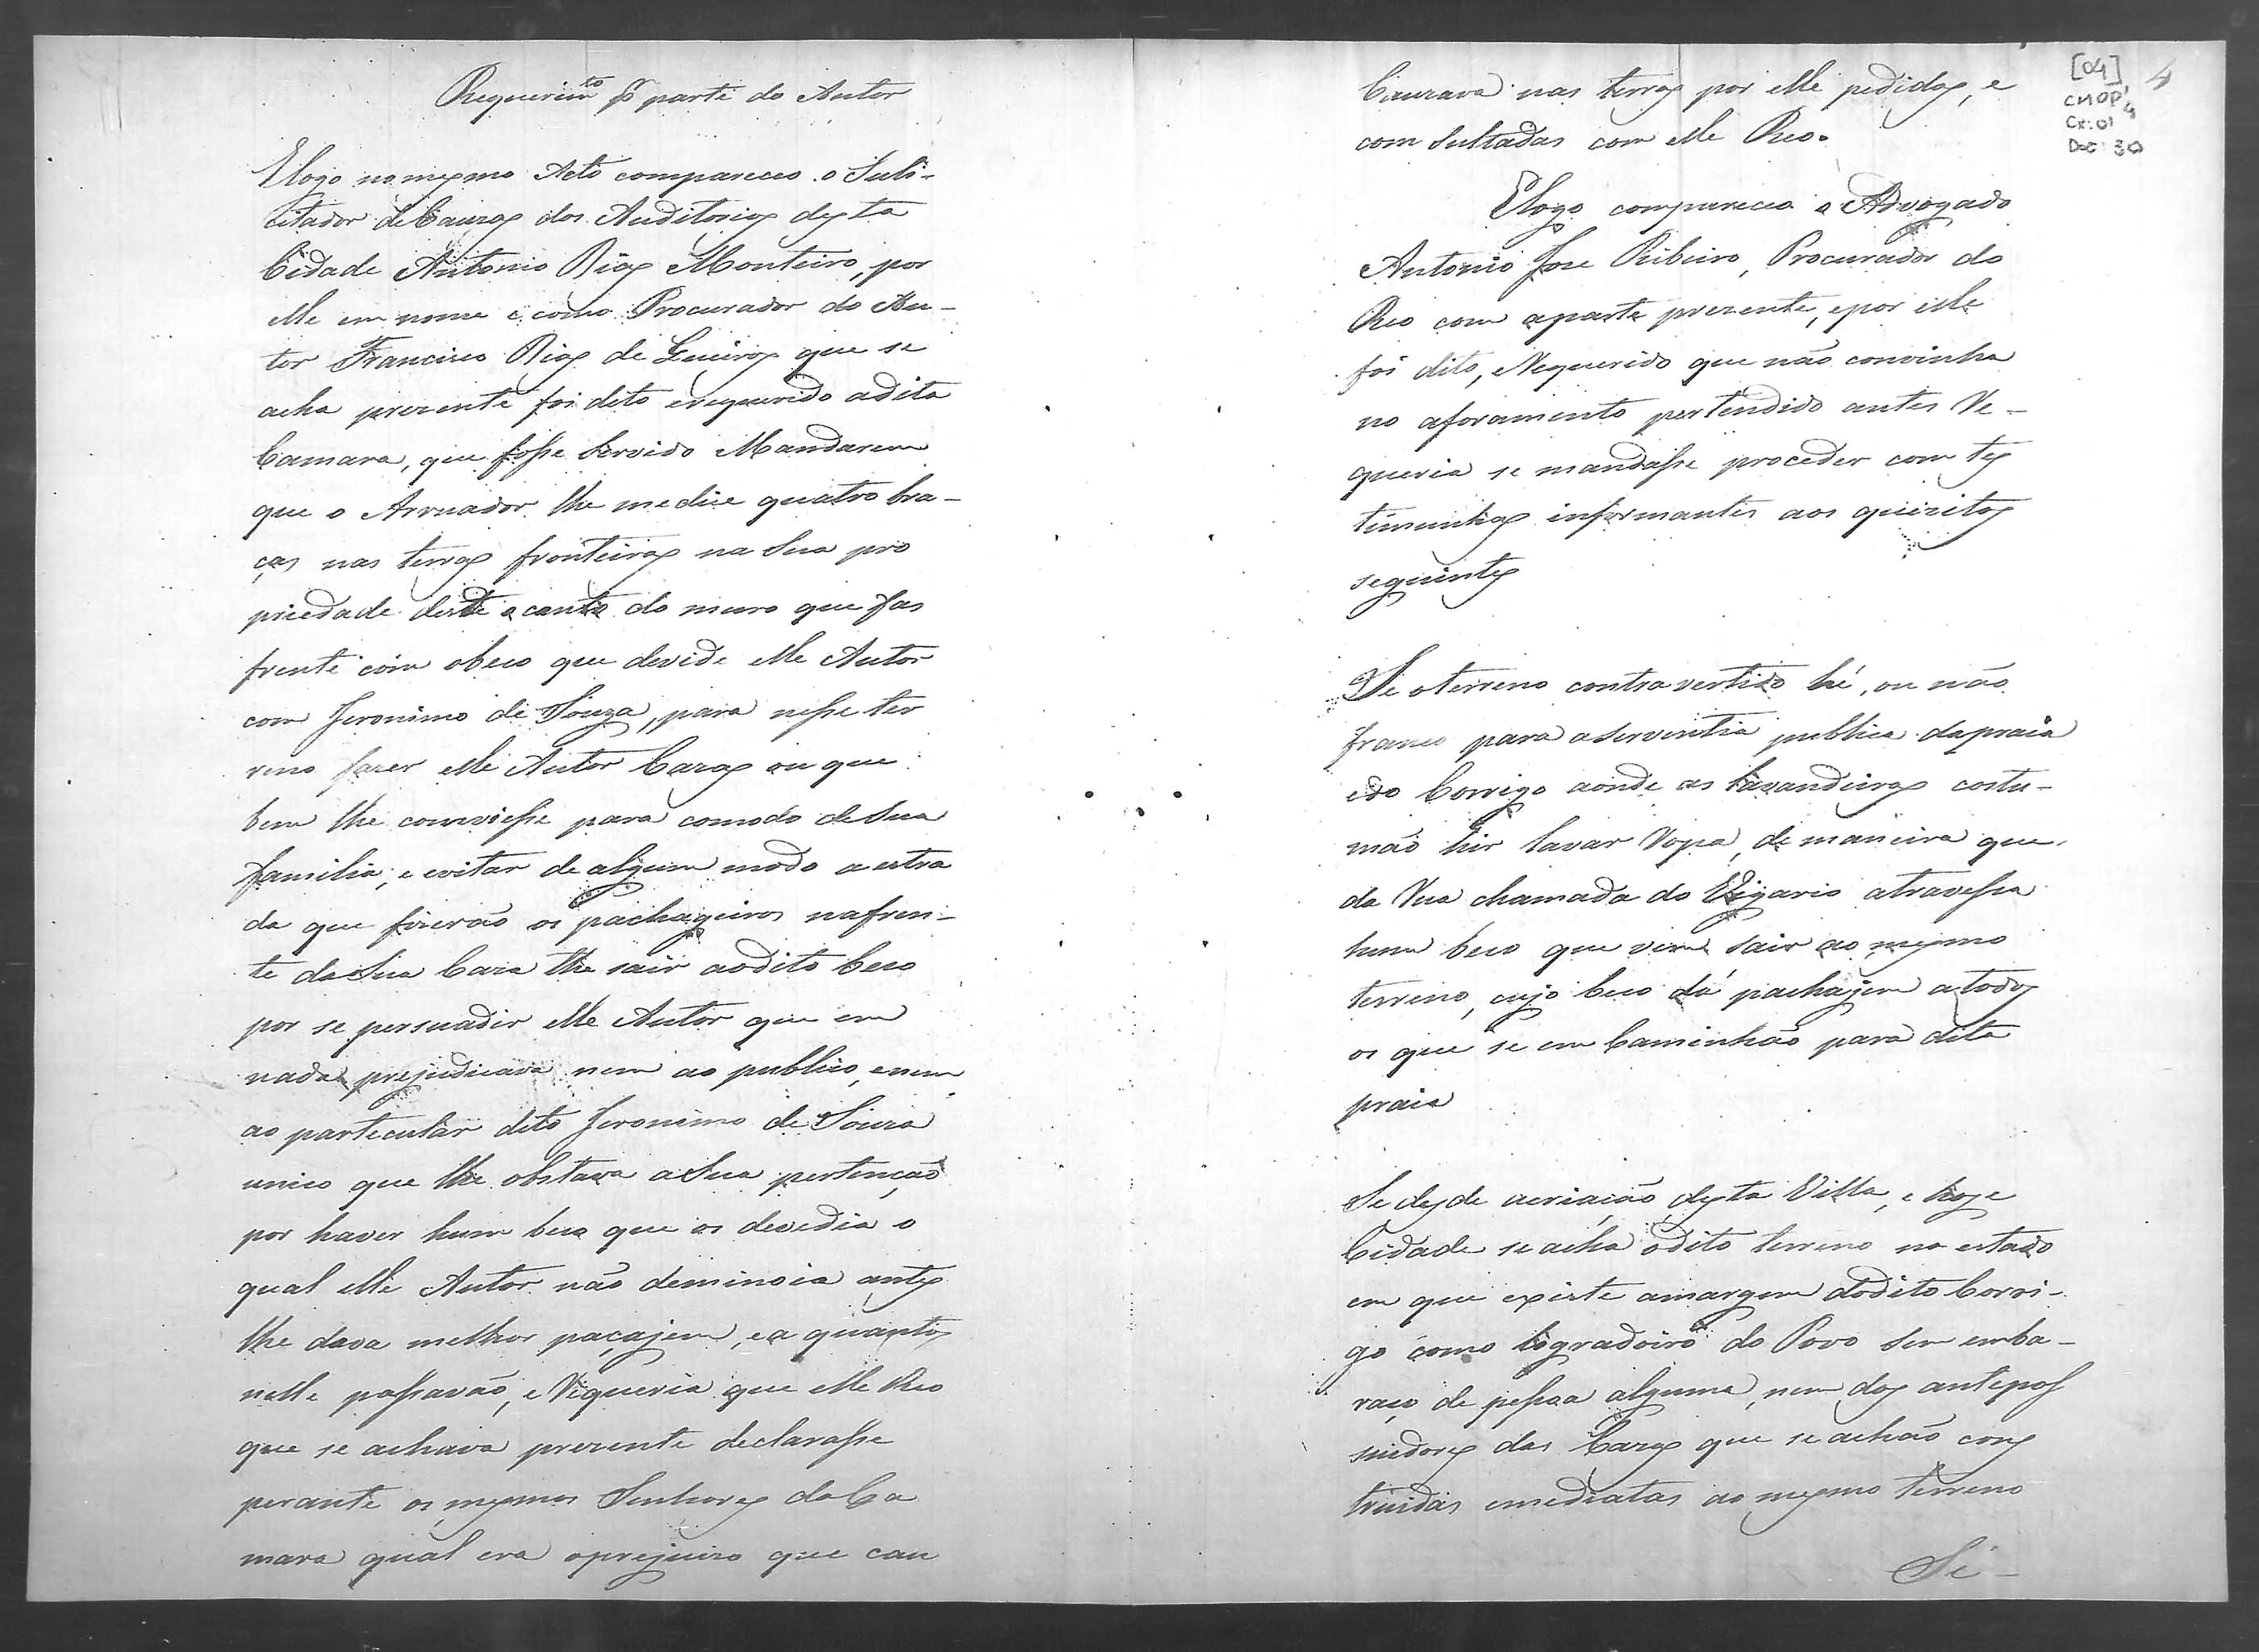 Requerim.to p.r parte do Autor
E logo no mesmo Acto compareceo o Suli-
citador de Cauzas dos Auditorios desta
Cidade Antonio Dias Monteiro, por
elle em nome e como Procurador do Au-
tor Francisco Dias de Queiros que se
acha prezente foi dito e requerido adita
Camara, que fosse Servido Mandarem
que o Arruador lhe medice quatro bra-
ças nas terras fronteiras na Sua pro
priedade desde o canto do muro que fas
frente com obeco que devide elle Autor
com Jeronimo de Souza, para nesse ter
reno fazer elle Autor Cazas ou que
bem lhe conviesse para comodo de Sua
familia, e evitar de algum modo a estra
da que fizerão os pachageiros nafren-
te da Sua Caza the sair aodito beco
por se persuadir elle Autor que em
nada prejudicava nem ao publico, enem
ao particular dito Jeronimo de Souza
unico que lhe obstava a Sua pertenção
por haver hum beco que os devedia o
qual elle Autor não deminoia antes
lhe dava melhor paçajem, e a quantos
nelle passavão, e Requeria que elle Reo
que se achava prezente declarasse
perante os mesmos Senhores da Ca
mara qual era oprejuizo que cau
Cauzava nas terras por elle pedidas, e
com sultadas com elle Reo.
E logo compareceo o Advogado
Antonio Jose Ribeiro, Procurador do
Reo com aparte prezente, epor elle
foi dito, eRequerido que não convinha
no aforamento pertendido antes Re-
queria se mandasse proceder com tes
timunhas informantes aos quizitos
seguintes
Se oterreno contravertido hé, ou não
franco para aserventia publica dapraia
edo Corrigo aonde as Lavandeiras costu-
mão hir lavar Ropa, de maneira que
da Rua chamada do Vigario atravessa
hum beco que vem sair ao mesmo
terreno, cujo beco dá pachajem atodos
os que se em Caminhão para dita
praia
Se desde acriação desta Villa, e hoje
Cidade se acha odito terreno no estado
em que existe amargem dodito Corri-
go como logradoiro do Povo sem emba-
raço de pessoa alguma, nem dos antepos
suidores das Cazas que se achão cons
truidas emediatas ao mesmo terreno
Se-
[04]
CMOP
Cx: 01
Doc: 30
4